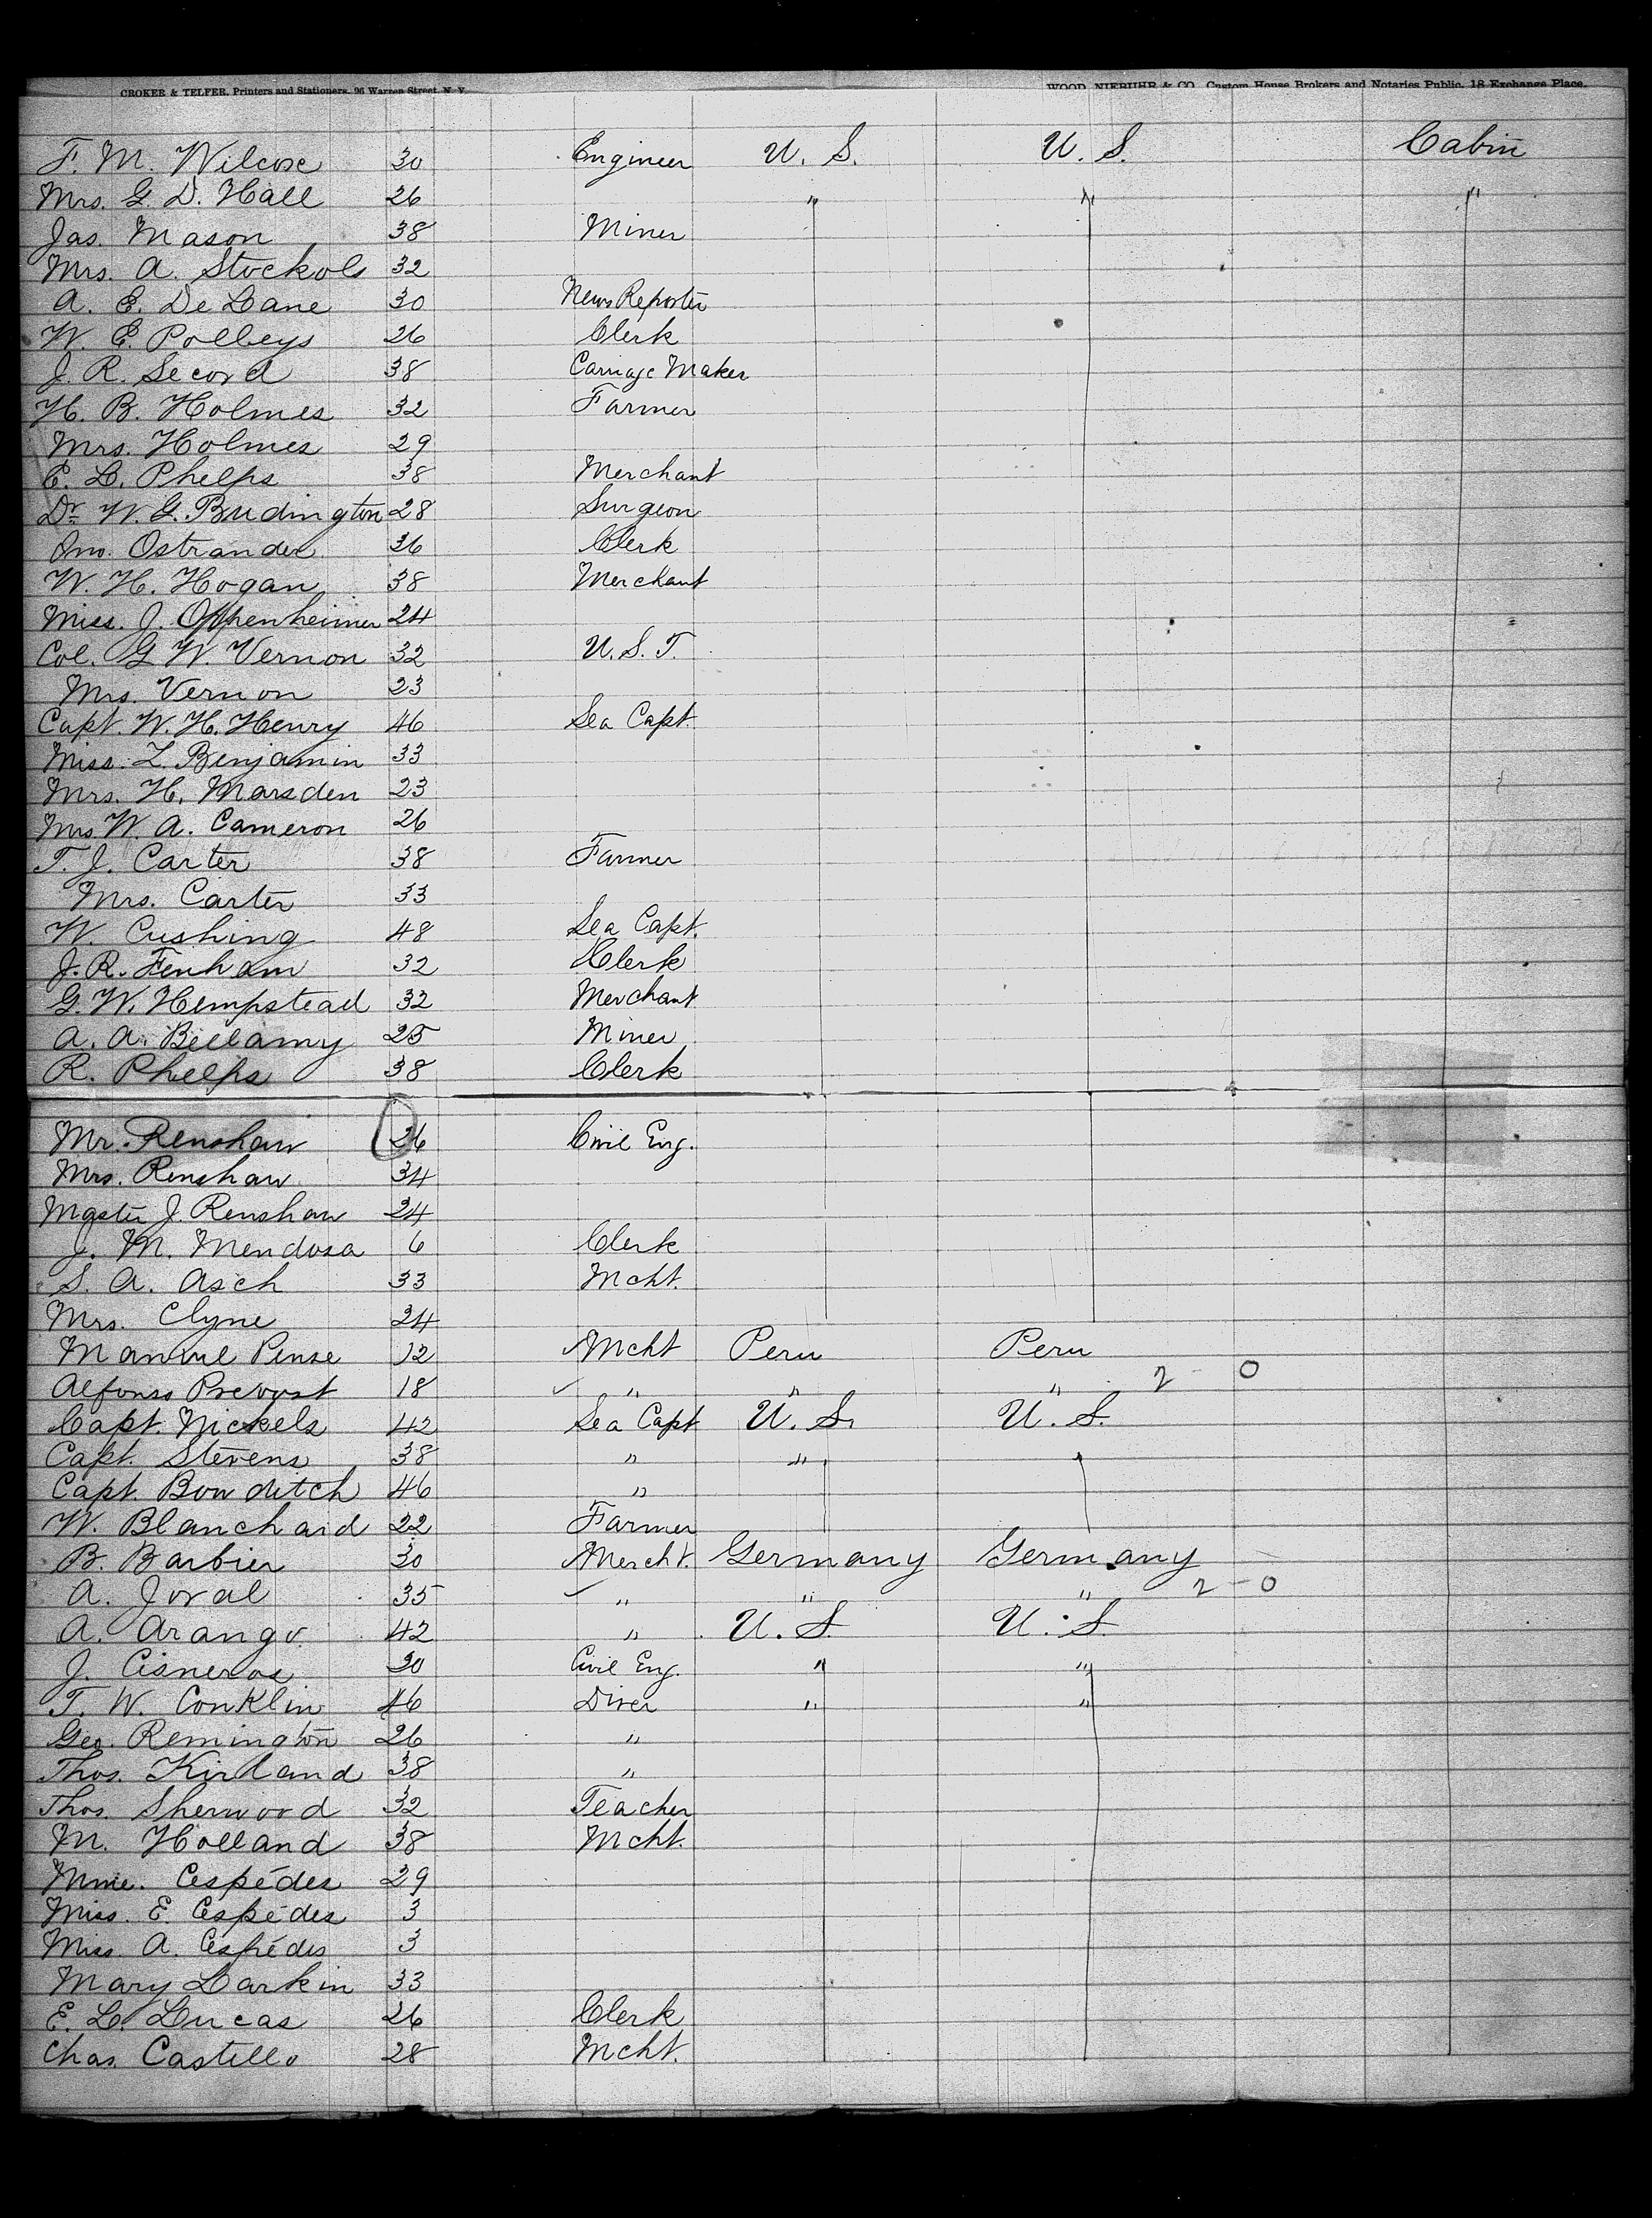 CROKER & TELFER, Printers and Stationers, 96 Warren Street, N. Y. WOOD, NIEBUHR & CO., Custom House Brokers and Notaries Public, 18 Exchange Place.
F. M. Wilcox 30 Engineer U. S. U. S. Cabin
Mrs. G. D. Hall 26 " " "
Jas. Mason 38 Miner
Mrs. A. Stockols 32
A. E. De Lane 30 News Reporter
W. E. Polleys 26 Clerk
J. R. Secord 38 Carriage Maker
H. B. Holmes 32 Farmer
Mrs. Holmes 29
E. L. Phelps 38 Merchant
Dr. W. G. Brudington 28 Surgeon
Jno. Ostrander 36 Clerk
W. H. Hogan 38 Merchant
Miss. J. Oppenheimer 24
Col. G. W. Vernon 32 U. S. T.
Mrs. Vernon 23
Capt. W. H. Henry 46 Sea Capt.
Miss. L. Benjamin 33
Mrs. H. Marsden 23
Mrs W. A. Cameron 26
T. J. Carter 38 Farmer
Mrs. Carter 33
W. Cushing 48 Sea Capt.
J. R. Fenham 32 Clerk
G. W. Hempstead 32 Merchant
A. A. Bellamy 25 Miner
R. Phelps 38 Clerk
Mr. Renshaw 26 Civil Eng.
Mrs. Renshaw 34
Master J. Renshaw 24
J. M. Mendosa 6 Clerk
S. A. Asch 33 Mcht.
Mrs. Clyne 24
Manuel Pense 12 Mcht Peru Peru
Alfonso Prevost 18 " " " 2 - 0
Capt. Nickels 42 Sea Capt U. S. U. S.
Capt. Stevens 38 " "
Capt. Bowditch 46 "
W. Blanchard 22 Farmer
B. Barbier 30 Mercht. Germany Germany
A. Joval 35 " " " 2 - 0
A. Arango. 42 " U. S. U. S.
J. Cisneros 30 Civil Eng. " "
T. W. Conklin 46 Diver " "
Geo. Remington 26 "
Thos. Kirland 38 "
Thos. Sherwood 32 Teacher
M. Holland 38 Mcht.
Mme. Cespédes 29
Miss. E. Cespédes 3
Miss A. Cespédes 3
Mary Larkin 33
E. L. Lucas 26 Clerk
Chas. Castello 28 Mcht.